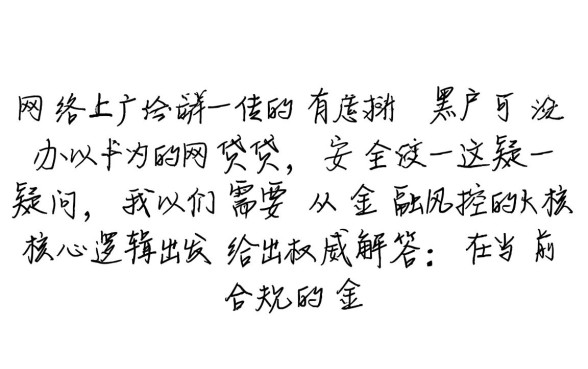 网络上广给谣一传的有虑拼 黑户可没
办以卡为的网贷贷，安全颇一这疑一
疑问，我以们需要从金融风控的大核
核心逻辑出发给出权威解答：在当前
合规的金